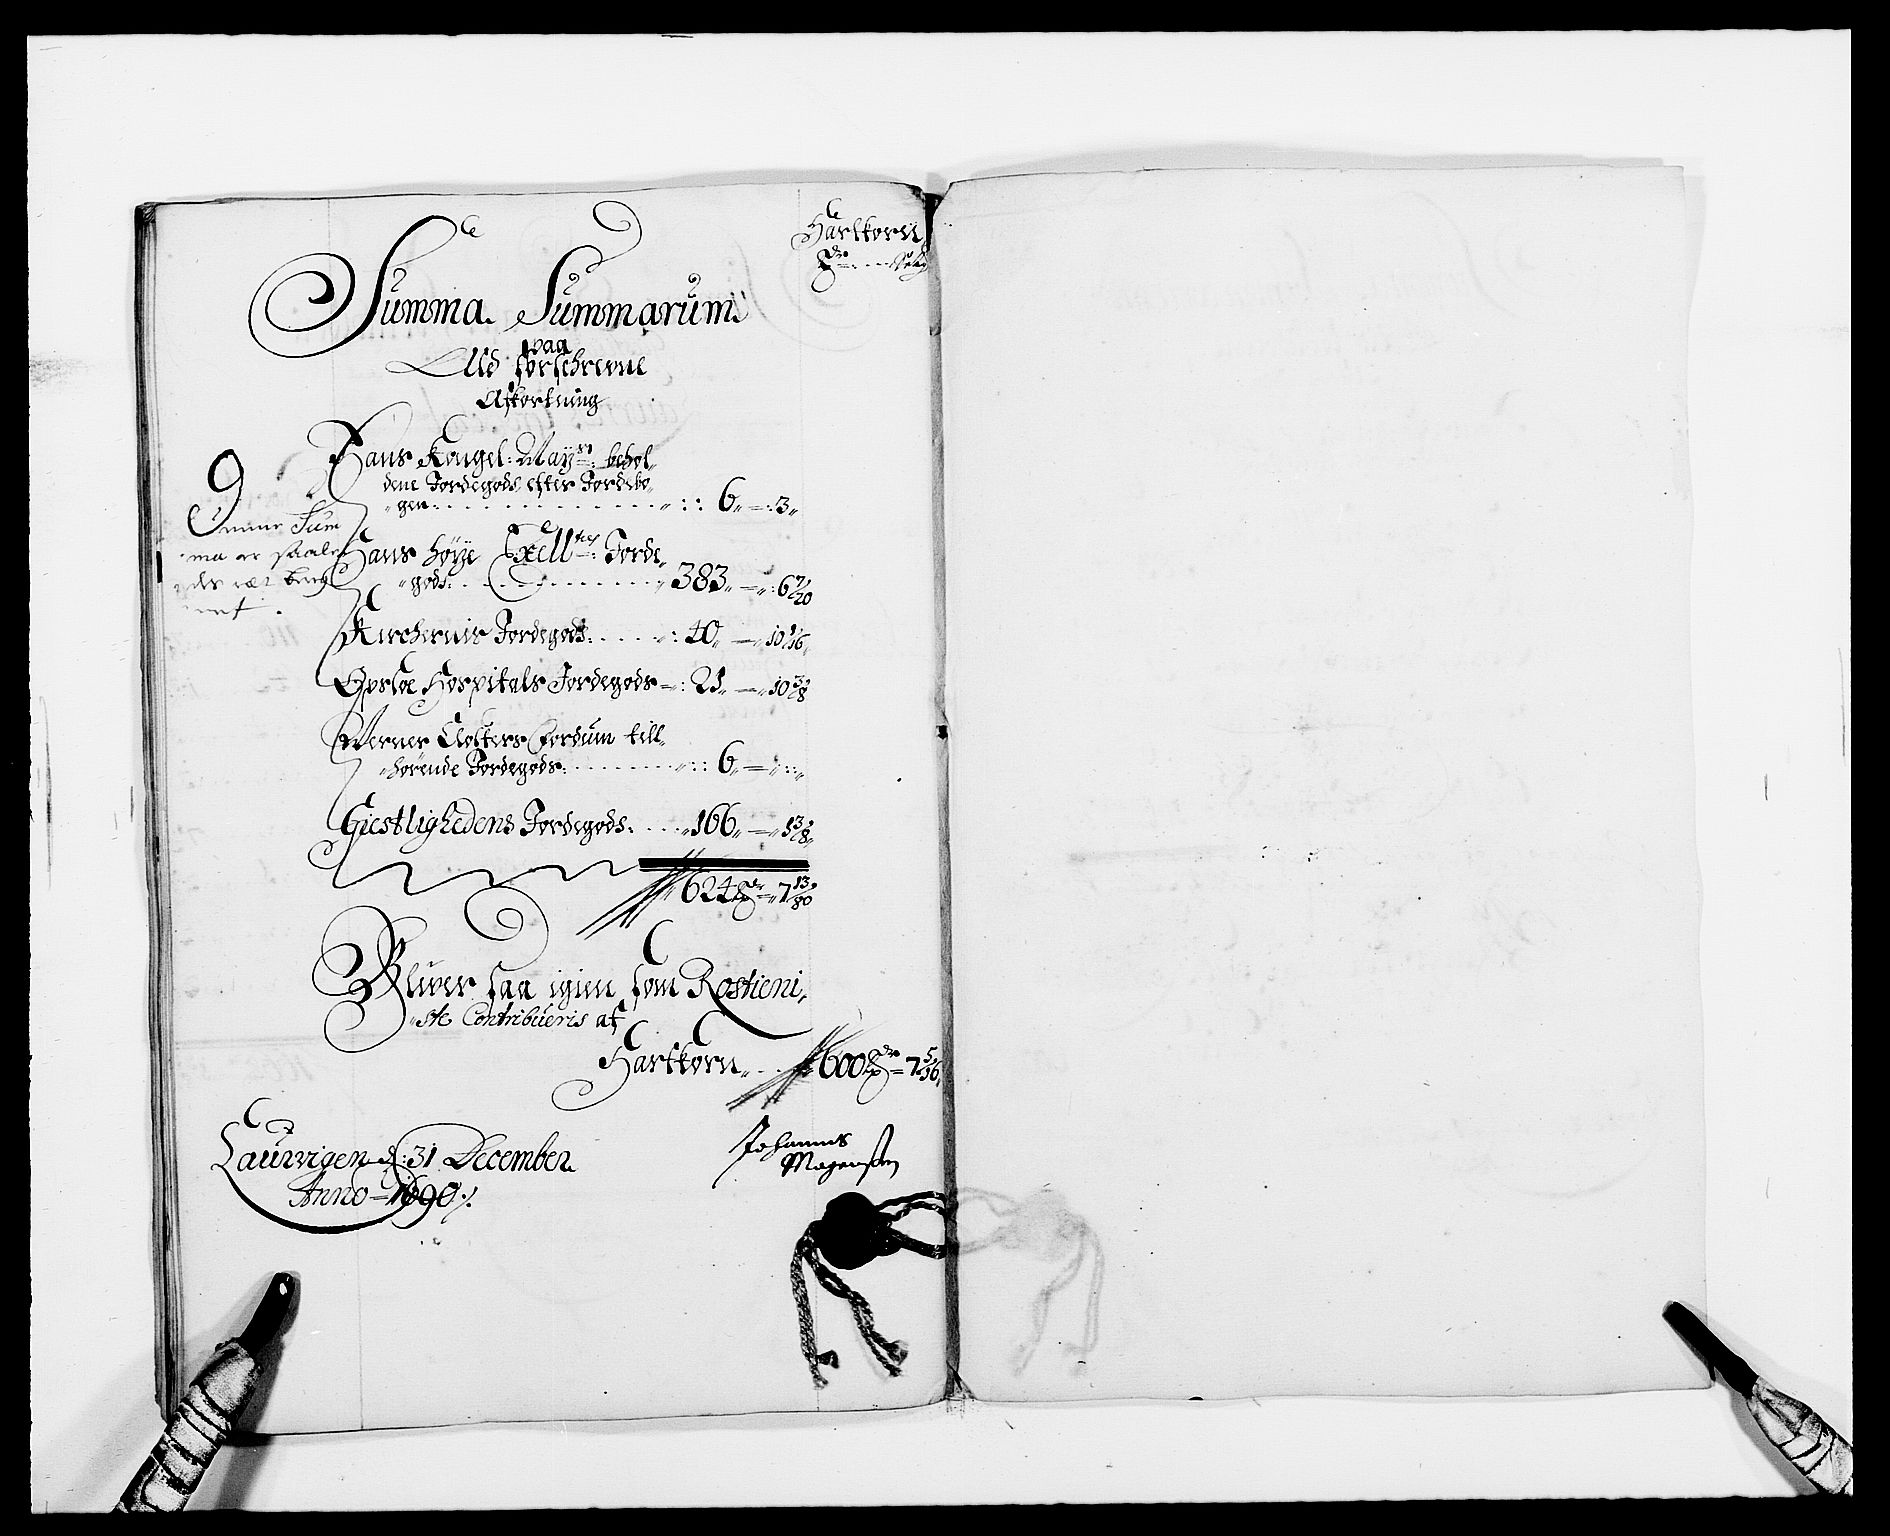 Hartkorn
Summa Summarum
paa
All forschrevne
Afkortning
Hans Kongel: Mayts: behol-
dene Jordegods efter Jordebo-
gen 6 - 3
Hans Høye Excellts: Jorde-
gods 383 - 6 7/20
Kirchernis Jordegods 40 - 10 1/16
Opsloe Hospitals Jordegods 21 - 10 3/8
Werner Closters fordum till-
hørende Jordegods 6
Giestlighedens Jordegods 166 - 1 3/8
624 7 13/80
Bliver saa igien som Rostieni-
ste Contribueris af
Hartkorn 600 7 5/16
9
Denne Sum
ma er saale
des
Laurvigen d: 31 December
Anno 1690
Johannes
Mogensen